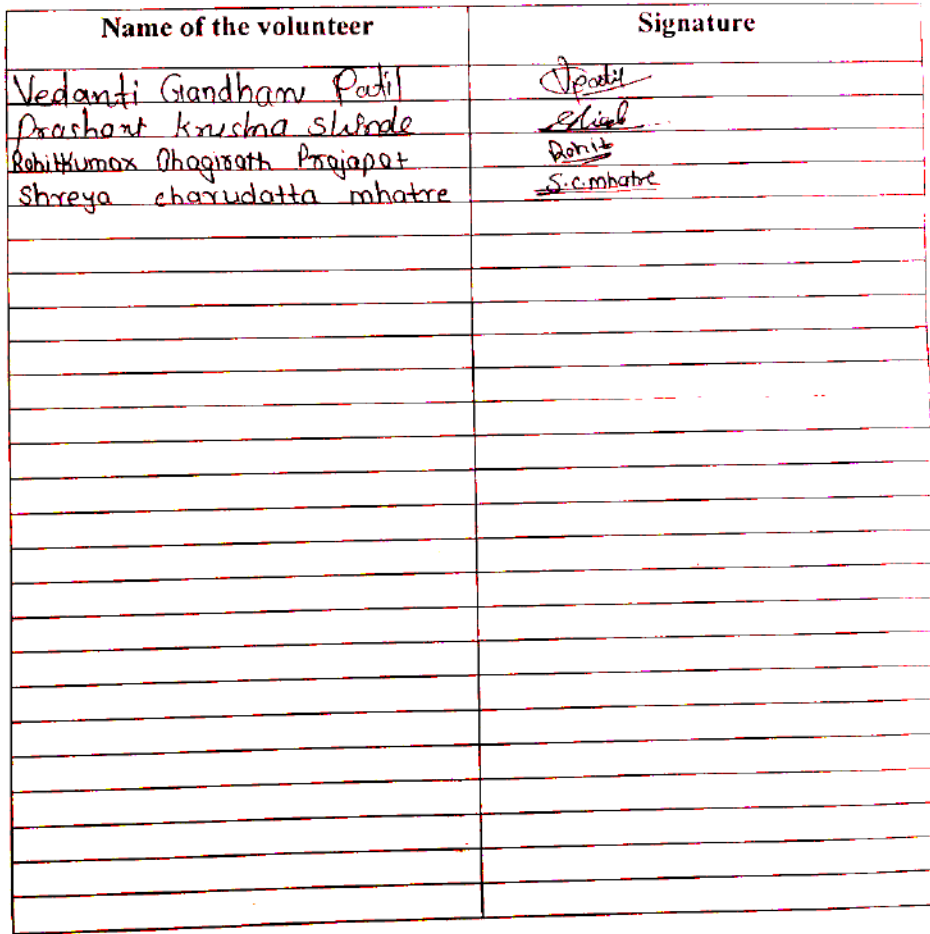 Name of the volunteer Signature
Vedanti Gandham Patil Vpatil
Prashant krushna shinde
Rohitkumar Bhagirath Prajapat Rohit
Shreya charudatta mhatre S.c.mhatre